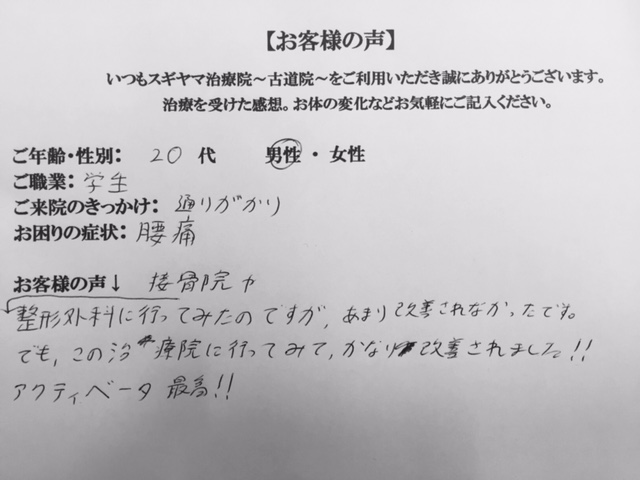 【お客様の声】
いつもスギヤマ治療院～古道院～をご利用いただき誠にありがとうございます。
治療を受けた感想。お体の変化などお気軽にご記入ください。
ご年齢・性別： 20 代 男性・女性
ご職業： 学生
ご来院のきっかけ： 通りがかり
お困りの症状： 腰痛
お客様の声↓ 接骨院や
整形外科に行ってみたのですが、あまり改善されなかったです。
でも、この治療院に行ってみて、かなり改善されました!!
アクティベータ 最高!!